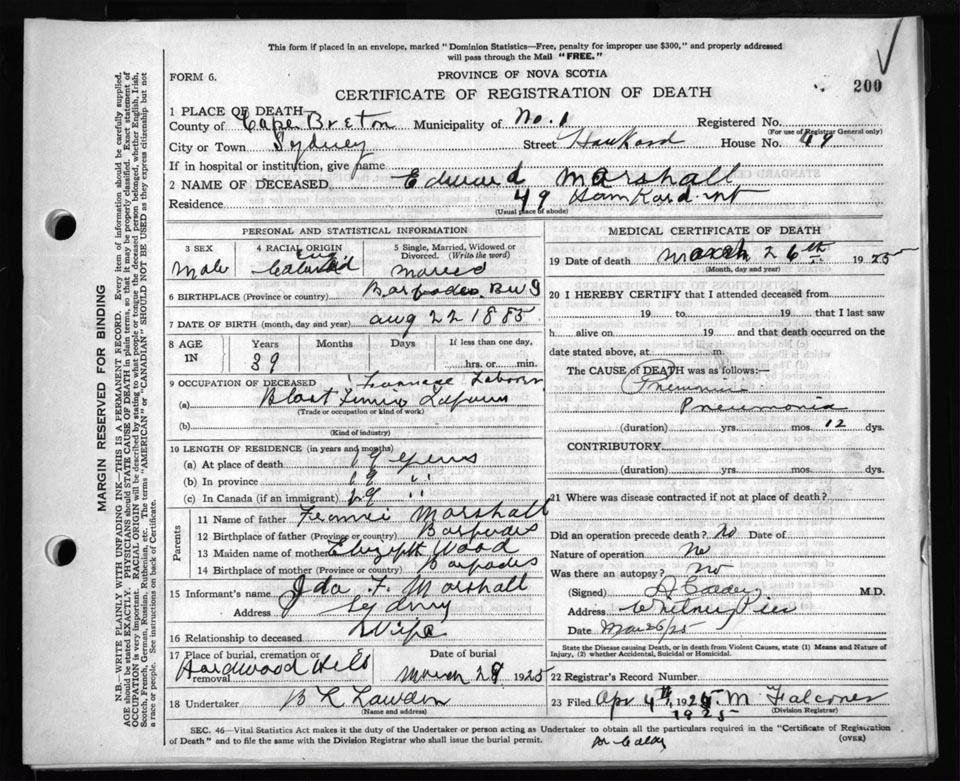 This form if placed in an envelope, marked "Dominion Statistics—Free, penalty for improper use $300," and properly addressed
will pass through the Mail "FREE."
FORM 6.
PROVINCE OF NOVA SCOTIA
200
CERTIFICATE OF REGISTRATION OF DEATH
1 PLACE OF DEATH
County of Cape Breton Municipality of No. 1 Registered No.
(For use of Registrar General only)
City or Town Sydney Street House No. 49
If in hospital or institution, give name
2 NAME OF DECEASED Edward Marshall
Residence 49
(Usual place of abode)
PERSONAL AND STATISTICAL INFORMATION
3 SEX 4 RACIAL ORIGIN 5 Single, Married, Widowed or Divorced. (Write the word)
Male
6 BIRTHPLACE (Province or country) Barbados BWI
7 DATE OF BIRTH (month, day and year) Aug 22 1885
8 AGE IN Years Months Days If less than one day,
39 hrs. or min.
9 OCCUPATION OF DECEASED
(a)
(Trade or occupation or kind of work)
(b)
(Kind of industry)
10 LENGTH OF RESIDENCE (in years and months)
(a) At place of death 19 years
(b) In province 19 "
(c) In Canada (if an immigrant) 19 "
Parents
11 Name of father Marshall
12 Birthplace of father (Province or country) Barbados
13 Maiden name of mother Elizabeth Wood
14 Birthplace of mother (Province or country) Barbados
15 Informant's name Ida F. Marshall
Address Sydney
16 Relationship to deceased Wife
17 Place of burial, cremation or removal Date of burial
Hardwood Hill March 28 1925
18 Undertaker
(Name and address)
MEDICAL CERTIFICATE OF DEATH
19 Date of death March 26th 1925
(Month, day and year)
20 I HEREBY CERTIFY that I attended deceased from
19 to 19 that I last saw
h alive on 19 and that death occurred on the
date stated above, at m.
The CAUSE of DEATH was as follows:—
Pneumonia
(duration) yrs. mos. 12 dys.
CONTRIBUTORY
(duration) yrs. mos. dys.
21 Where was disease contracted if not at place of death?
Did an operation precede death? No Date of
Nature of operation No
Was there an autopsy? No
(Signed) M.D.
Address Whitney Pier
Date Mar 26/25
State the Disease causing Death, or in death from Violent Causes, state (1) Means and Nature of
Injury, (2) whether Accidental, Suicidal or Homicidal.
22 Registrar's Record Number
23 Filed Apr 4th 1925 M Falconer
1925 (Division Registrar)
SEC. 46—Vital Statistics Act makes it the duty of the Undertaker or person acting as Undertaker to obtain all the particulars required in the "Certificate of Registration
of Death" and to file the same with the Division Registrar who shall issue the burial permit. (OVER)
MARGIN RESERVED FOR BINDING
N.B.—WRITE PLAINLY WITH UNFADING INK—THIS IS A PERMANENT RECORD. Every item of information should be carefully supplied.
AGE should be stated EXACTLY. PHYSICIANS should STATE CAUSE OF DEATH in plain terms, so that it may be properly classified. Exact statement of
OCCUPATION is very important. RACIAL ORIGIN will be described by stating to what people or tongue the deceased person belonged, whether English, Irish,
Scotch, French, German, Russian, Ruthenian, etc. The terms "AMERICAN" or "CANADIAN" SHOULD NOT BE USED as they express citizenship but not
a race or people. See instructions on back of Certificate.